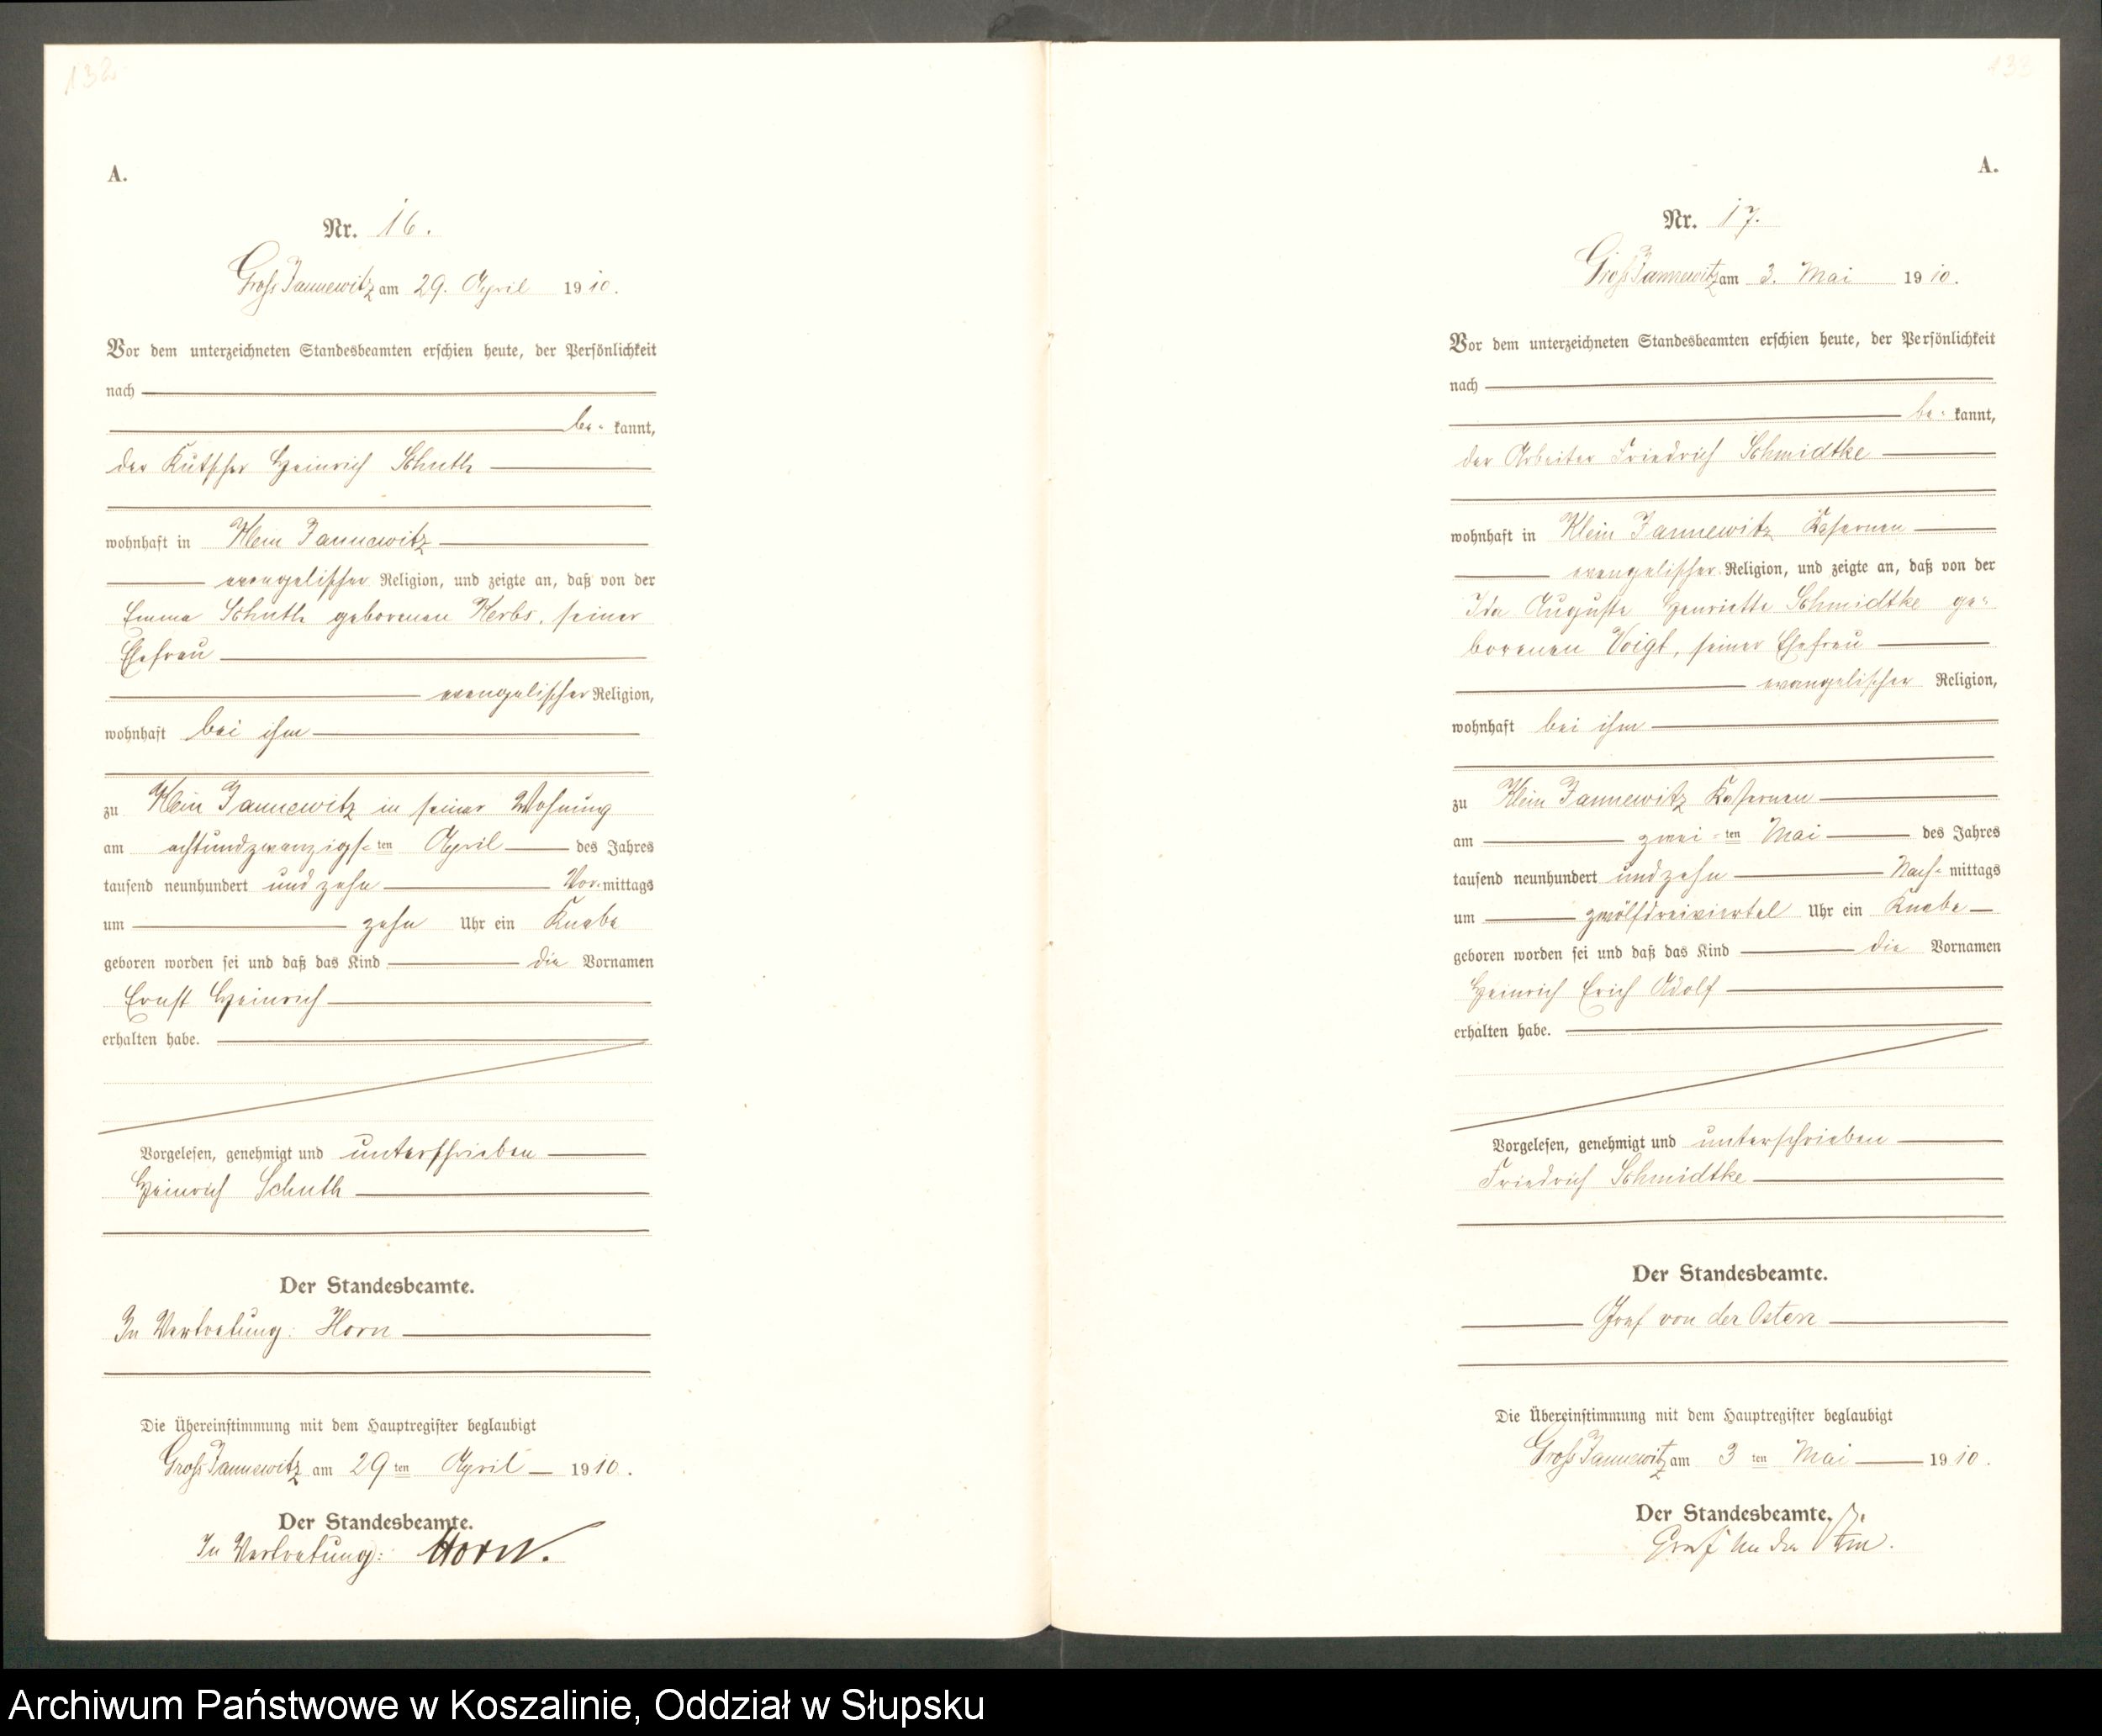 132
A.
Nr. 16.
Groß Jannewitz am 29. April 1910.
Vor dem unterzeichneten Standesbeamten erschien heute, der Persönlichkeit
nach
be- kannt,
der Kutscher Heinrich Schuth
wohnhaft in Klein Jannewitz
evangelischer Religion, und zeigte an, daß von der
Emma Schuth geborenen Kerbs, seiner
Ehefrau
evangelischer Religion,
wohnhaft bei ihm
zu Klein Jannewitz in seiner Wohnung
am achtundzwanzigs- ten April des Jahres
tausend neunhundert und zehn Vor- mittags
um zehn Uhr ein Knabe
geboren worden sei und daß das Kind die Vornamen
Ernst Heinrich
erhalten habe.
Vorgelesen, genehmigt und unterschrieben
Heinrich Schuth
Der Standesbeamte.
In Vertretung: Horn
Die Übereinstimmung mit dem Hauptregister beglaubigt
Groß Jannewitz am 29 ten April 1910.
Der Standesbeamte.
In Vertretung: Horn.
133
A.
Nr. 17.
Groß Jannewitz am 3. Mai 1910.
Vor dem unterzeichneten Standesbeamten erschien heute, der Persönlichkeit
nach
be- kannt,
der Arbeiter Friedrich Schmidtke
wohnhaft in Klein Jannewitz Kasernen
evangelischer Religion, und zeigte an, daß von der
Ida Auguste Henriette Schmidtke ge-
borenen Voigt, seiner Ehefrau
evangelischer Religion,
wohnhaft bei ihm
zu Klein Jannewitz Kasernen
am zwei- ten Mai des Jahres
tausend neunhundert und zehn Nach- mittags
um zwölfdreiviertel Uhr ein Knabe
geboren worden sei und daß das Kind die Vornamen
Heinrich Erich Adolf
erhalten habe.
Vorgelesen, genehmigt und unterschrieben
Friedrich Schmidtke
Der Standesbeamte.
Graf von der Osten
Die Übereinstimmung mit dem Hauptregister beglaubigt
Groß Jannewitz am 3 ten Mai 1910.
Der Standesbeamte.
Graf von der Osten.
Archiwum Państwowe w Koszalinie, Oddział w Słupsku